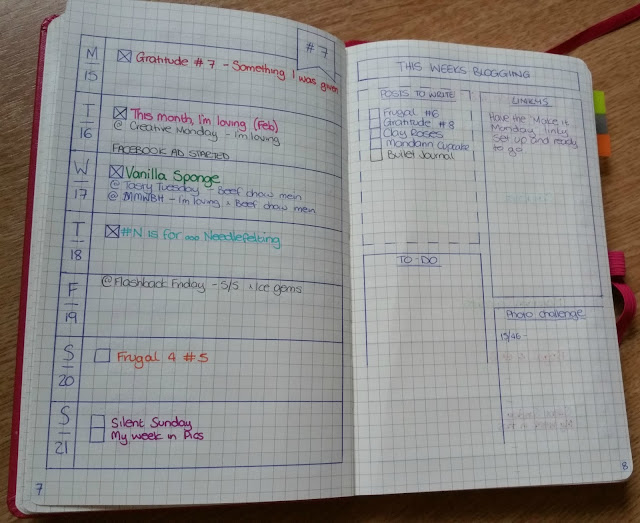 # 7
M
15
Gratitude # 7 - Something I was given
T
16
This month, I'm loving (Feb)
@ Creative Monday - Im loving
FACEBOOK AD STARTED
W
17
Vanilla Sponge
@ Tasty Tuesday - Beef chow mein
@ MMWBH - Im loving + Beef chow mein
T
18
#N is for ooo Needlefelting
F
19
@Flashback Friday - S/S + Ice gems
S
20
Frugal 4 # 5
S
21
Silent Sunday
My week in Pics
7
THIS WEEKS BLOGGING
POSTS TO WRITE
Frugal #6
Gratitude # 8
Clay Roses
Mandarin Cupcake
Bullet Journal
TO-DO
LINKYS
Have the 'Make it
Monday' linky
set up and ready
to go!
Photo challenge
8